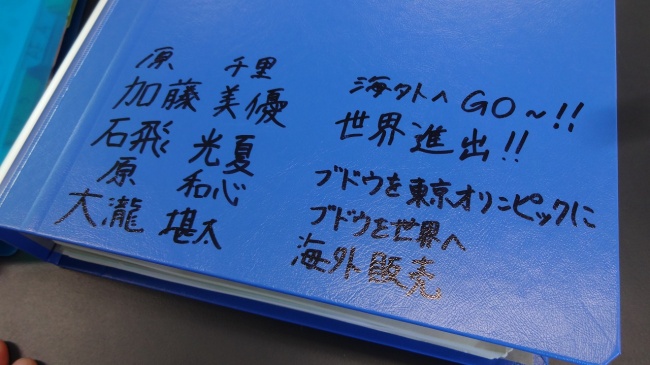 原 千里 海外へGO~!!
加藤 美優 世界進出!!
石飛 光夏 ブドウを東京オリンピックに
原 和心 ブドウを世界へ
大瀧 堪太 海外販売